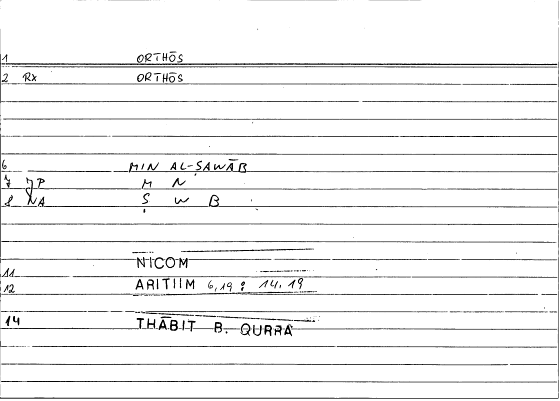 1 ORTHŌS
2 Rx ORTHŌS
6 MIN AL-ṢAWĀB
7 JP M N
8 NA Ṣ W B
NICOM
11
12 ARITIIM 6,19 : 14,19
14 THĀBIT B. QURRA